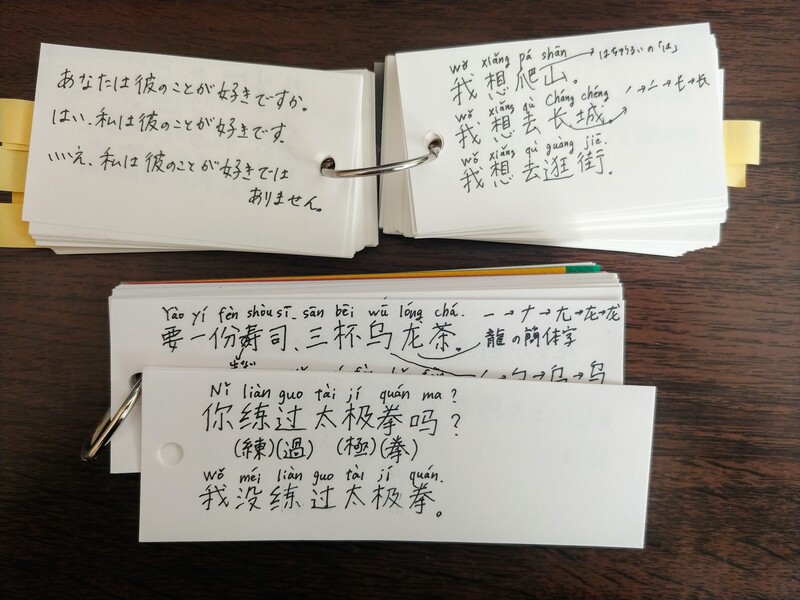 あなたは彼のことが好きですか。
はい、私は彼のことが好きです。
いいえ、私は彼のことが好きでは
ありません。
wǒ xiǎng pá shān
我想爬山。 はちゅうるいの「は」
wǒ xiǎng qù Cháng chéng
我想去长城
wǒ xiǎng qù guang jiē.
我想去逛街。
Yào yí fèn shòu sī sān bēi wū lóng chá.
要一份寿司、三杯乌龙茶。 一→ナ→尢→龙→龙
龍の簡体字
Nǐ liàn guo tài jí quán ma?
你练过太极拳吗?
(練)(過) (極)(拳)
wǒ méi liàn guo tài jí quán.
我没练过太极拳。